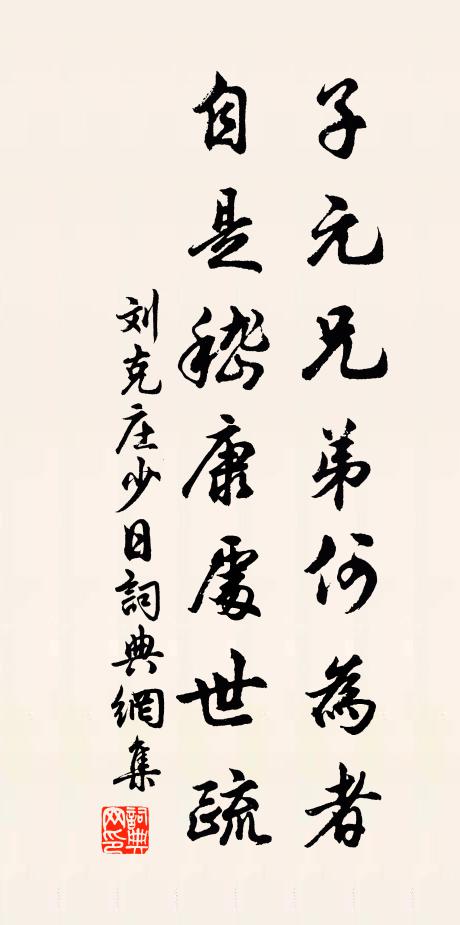 子元兄弟何為者
自是嵇康處世疏
刘克庄少日詞典網集
詞典網印